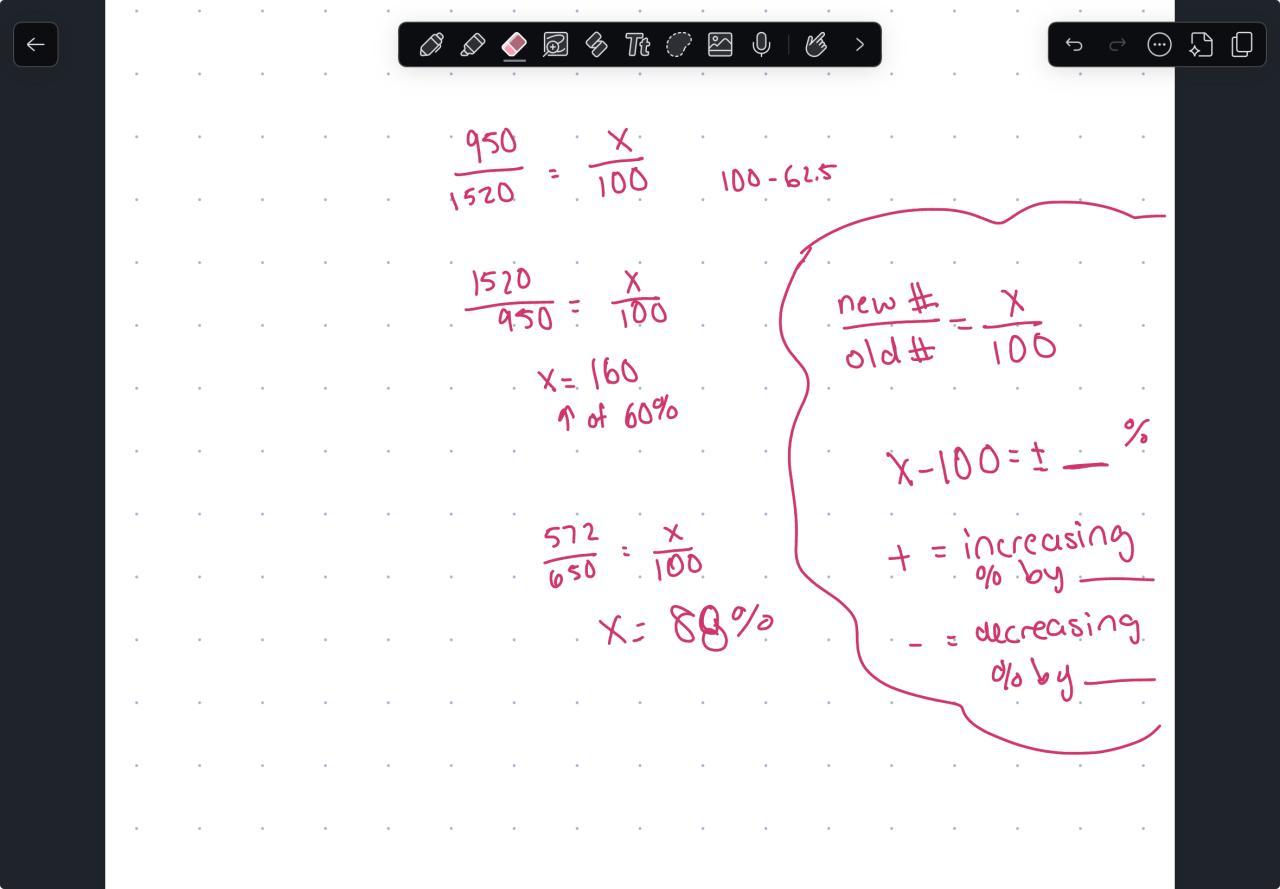 950/1520 = x/100
100 - 62.5
1520/950 = x/100
x = 160
↑ of 60%
572/650 = x/100
x = 88%
new #/old # = x/100
x - 100 = ± __ %
+ = increasing
% by ____
- = decreasing
% by ____
Tt